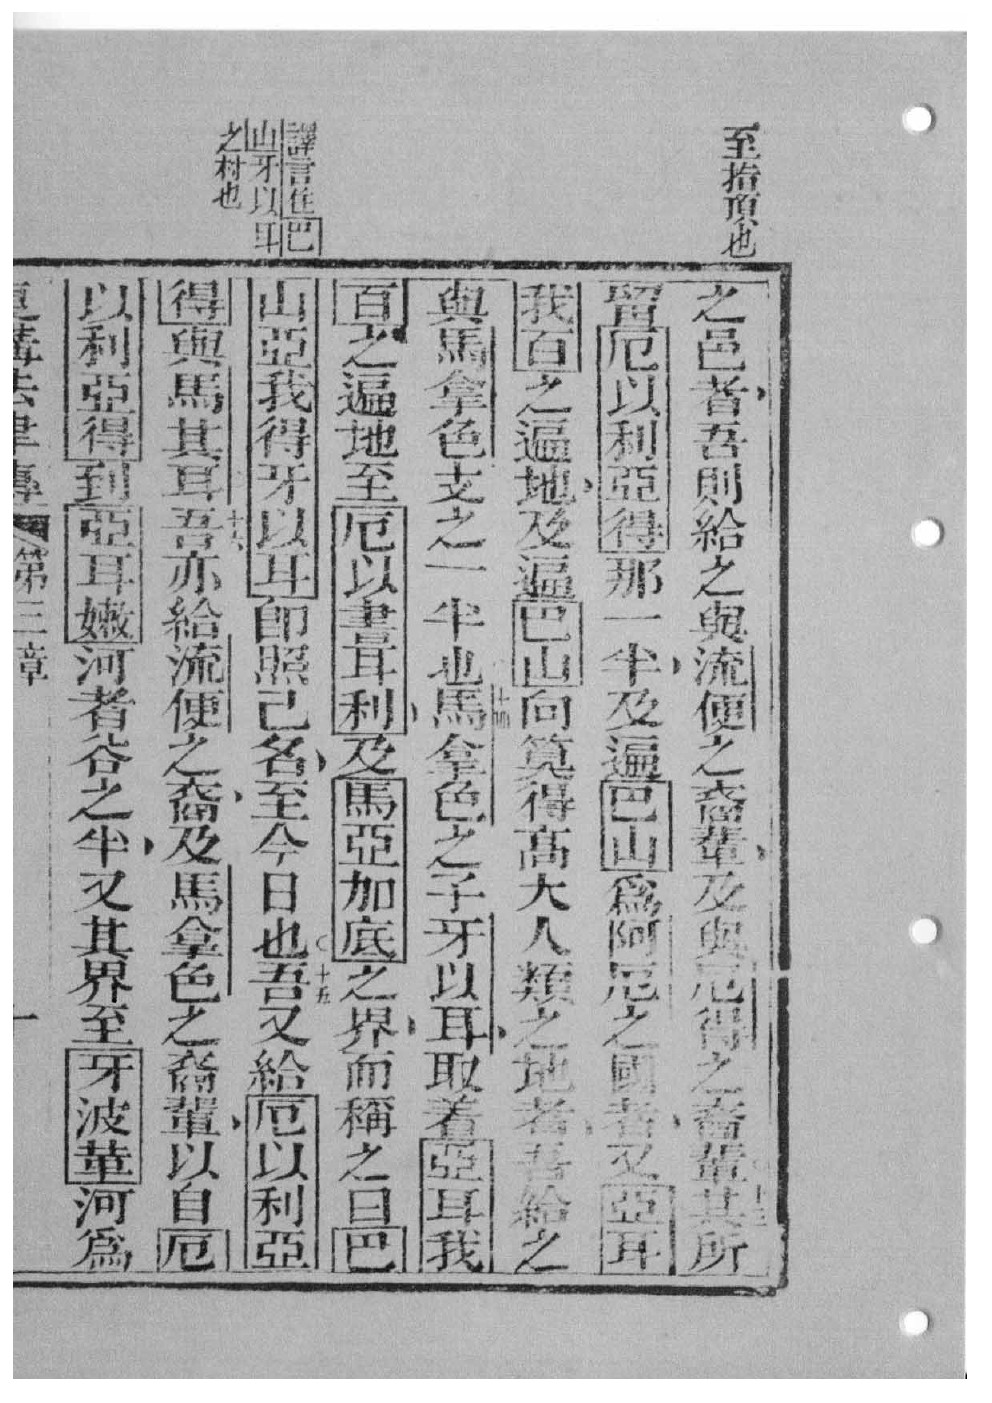 至指項也
譯言住巴
山牙以耳
之村也
之邑者吾則給之與流便之裔輩及與厄得之裔輩其所
留厄以利亞得那一半及遍巴山為阿厄之國者又亞耳
我百之遍地及遍巴山向算得高大人類之地者吾給之
與馬拿色支之一半也十四馬拿色之子牙以耳取着亞耳我
百之遍地至厄以書耳利及馬亞加底之界而稱之曰巴
山亞我得牙以耳即照己名至今日也十五吾又給厄以利亞
得與馬其耳十六吾亦給流便之裔及馬拿色之裔輩以自厄
以利亞得到亞耳嫩河者谷之半又其界至牙波革河為
復講法律傳 第三章 一